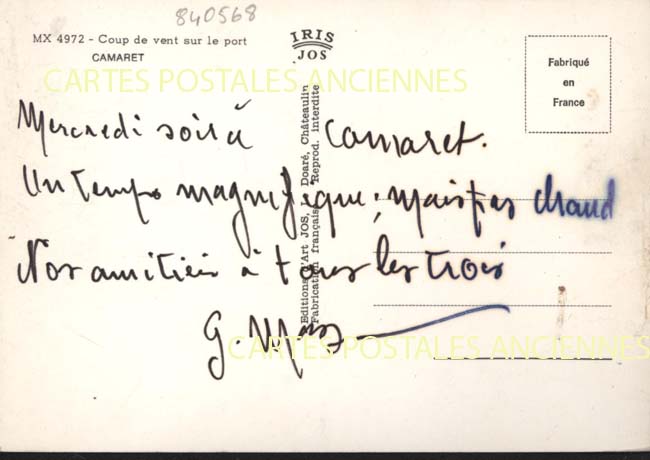 840568
MX 4972 - Coup de vent sur le port
CAMARET
IRIS
JOS
Fabriqué
en
France
CARTES POSTALES ANCIENNES
Editions d'Art JOS, Doaré, Châteaulin
Fabrication française Reprod. interdite
Mercredi soir à Camaret.
Un temps magnifique, mais pas chaud
Nos amitiés à tous les trois
G.
CARTES POSTALES ANCIENNES